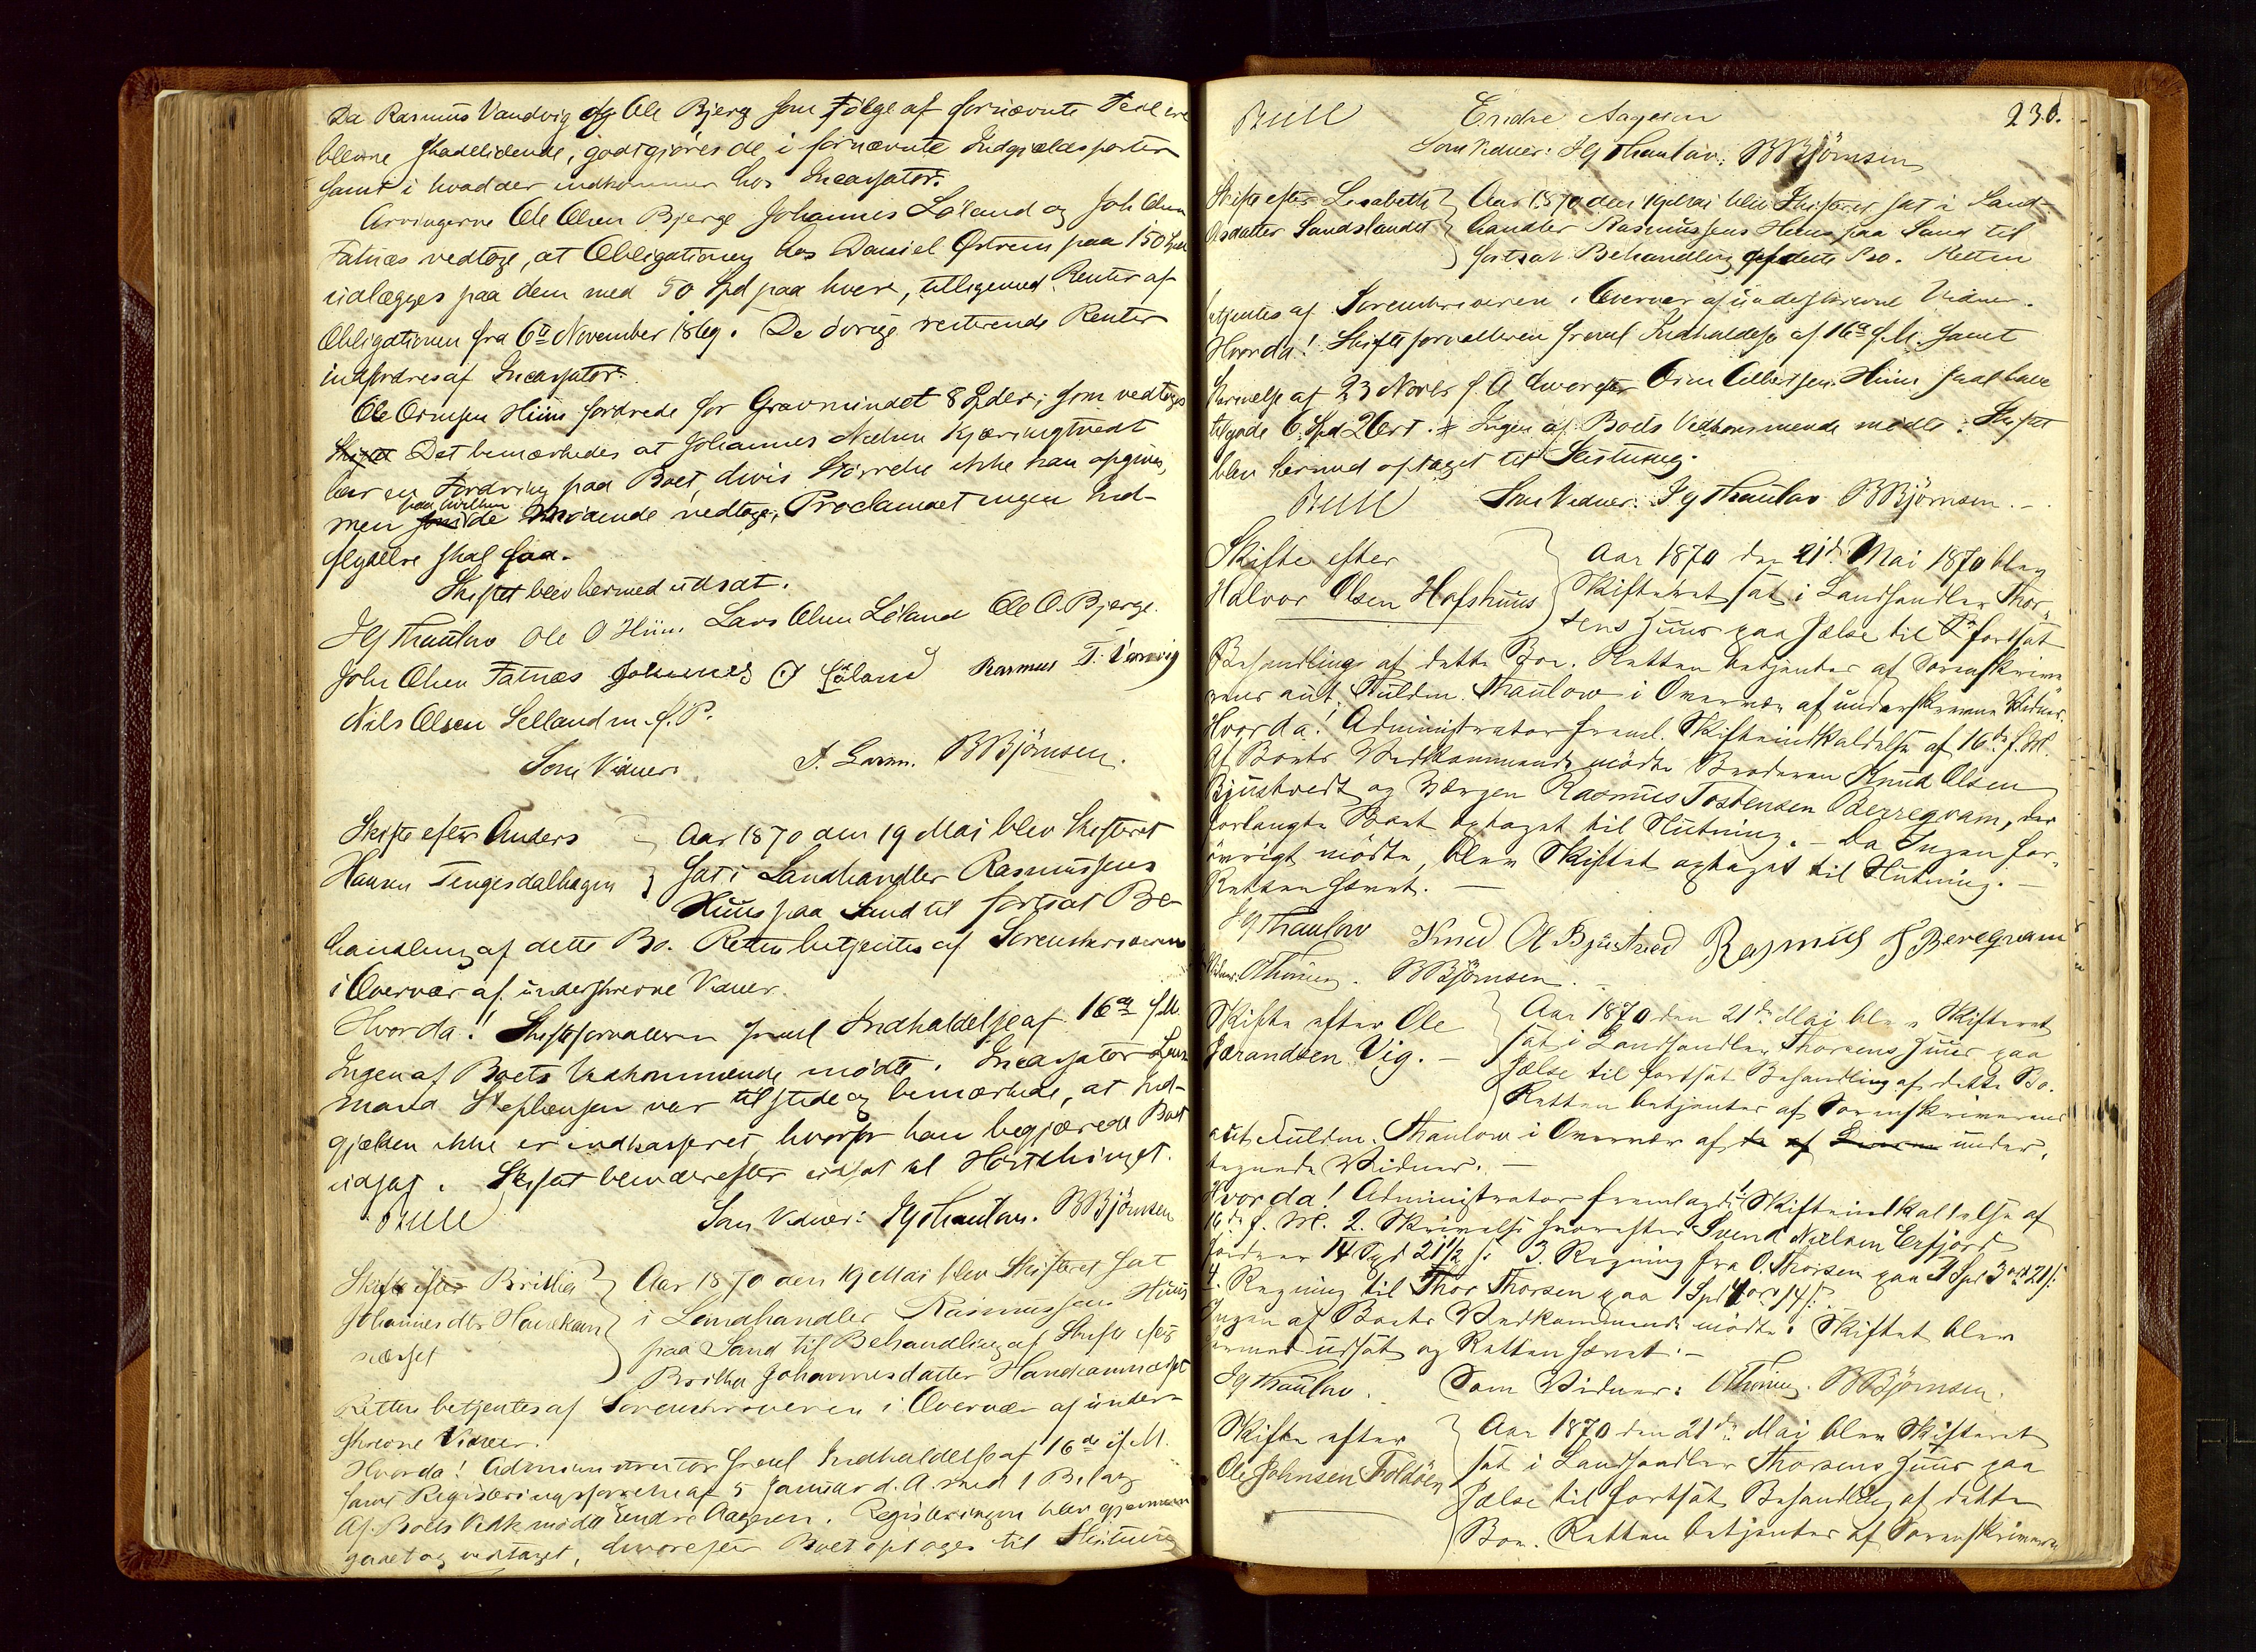 Da Rasmus Vandvig og Ole Bjerg som Følge af fornævnte Feil ere
blevne skadelidende, godtgjøres de i fornævnte Indgjældsposter
samt i hvad der indkommer hos Incassator.
Arvingerne Ole Olsen Bjerge Johannes Løland og Joh Olsen
Fatnæs vedtoge, at Obligationen hos Daniel Østrem paa 150 Spd
udlægges paa dem med 50 Spd paa hver, tilligemed Renter af
Obligationen fra 6te November 1869. De øvrige resterende Renter
indfordres af Incassator.
Ole Ormsen Hiim fordrede for Gravmindet 8 Spdlr, som vedtoges
Skiftet Det bemærkedes at Johannes Nielsen Kjæringtvedt
har en Fordring paa Boet, hvis Størrelse ikke kan opgives,
paa hvilken
men som de Mødende vedtage, Proclamaet ingen Ind-
flydelse skal faa.
Skiftet blev hermed udsat.
J G Thaulow Ole O Hiim. Lars Olsen Løland Ole O. Bjerge.
John Olsen Fatnæs Johannes O Løland Rasmus T. Vanvig
Nils Olsen Selland m. f. P.
Som Vidner: BBjörnsen.
Skifte efter Anders Aar 1870 den 19 Mai blev Skifteret
Hansen Tengesdalhagen sat i Landhandler Rasmussens
Huus paa Sand til fortsat Be-
handling af dette Bo. Retten betjentes af Sorenskriveren
i Overvær af underskrevne Vidner.
Hvorda! Skifteforvalteren freml Indkaldelse af 16de f.M.
Ingen af Boets Vedkommende mødte. Incassator Lens-
mand Stephensen var tilstede og bemærkede, at Ind-
gjælden ikke er indkasseret, hvorfor han begjærede Boet
udsat. Skiftet blev derefter udsat til Høstthinget.
Bull Som Vidner: J G Thaulow. BBjörnsen
Skifte efter Britha Aar 1870 den 19 Mai blev Skifteret sat
Johannesdtr Handkam i Landhandler Rasmussens Huus
næsset paa Sand til Behandling af Skifte efter
Britha Johannesdatter Handkamnæsset
Retten betjentes af Sorenskriveren i Overvær af under-
skrevne Vidner.
Hvorda! Administrator freml Indkaldelse af 16de f. M.
samt Registreringsforretn af 5 Januar d. A. med 1 Bilag
Af Boets Vedk mødte Endre Aagesen. Registreringen blev gjennem
gaaet og vedtaget, hvorefter Boet optoges til Slutning
Bull Endre Aagesen 230.
Som Vidner: J G Thaulow. BBjörnsen
Skifte efter Lisabeth Aar 1870 den 19 Mai blev Skifteret sat i Land-
Asdatter Sandslandet handler Rasmussens Huus paa Sand til
fortsat Behandling af dette Bo. Retten
betjentes af Sorenskriveren i Overvær af underskrevne Vidner.
Hvorda! Skifteforvalteren freml Indkaldelse af 16de f. M. samt
Skrivelse af 23 Novbr f. A hvorefter Orm Albertsen Hiim skal have
tilgode 6 Spd 2 Ort. Ingen af Boets Vedkommende mødte. Skiftet
blev hermed optaget til Slutning.
Bull Som Vidner: J G Thaulow BBjörnsen.
Skifte efter Aar 1870 den 21de Mai 1870 blev
Halvor Olsen Hofshuus Skifteret sat i Landhandler Thor-
sens Huus paa Jelse til fortsat
Behandling af dette Boe. Retten betjentes af Sorenskrive-
rens aut. Fuldm. Thaulow i Overvær af underskrevne Vidner.
Hvorda! Administrator freml. Skifteindkaldelse af 16de f. M.
Af Boets Vedkommende mødte Broderen Knud Olsen
Bjustvedt og Værgen Rasmus Tostensen Berregvam, der
forlangte Boet optaget til Slutning. – Da Ingen for-
øvrigt mødte, blev Skiftet optaget til Slutning. –
Retten hævet. –
J G Thaulow Knud O Bjustved Rasmus T Beregvam
Vidner: BBjörnsen.
Skifte efter Ole Aar 1870 den 21de Mai blev Skifteret
Jørandsen Vig. – sat i Landhandler Thorsens Huus paa
Jelse til fortsat Behandling af dette Bo.
Retten betjentes af Sorenskriverens
aut. Fuldm. Thaulow i Overvær af under-
tegnede Vidner. –
Hvorda! Administrator fremlagde 1. Skifteindkaldelse af
16de f. M. 2. Skrivelse hvorefter Svend Nielsen Erfjord
fordrer 14 Spd 21½ s: 3. Regning fra O. Thorsen paa 1 Spd 3 ort 21 s:
4. Regning til Thor Thorsen paa 1 Spd 4 ort 14 s:
Ingen af Boets Vedkommende mødte. Skiftet blev
hermed udsat og Retten hævet. –
J G Thaulow. Som Vidner: BBjörnsen.
Skifte efter Aar 1870 den 21de Mai blev Skifteret
Ole Johnsen Foldøen sat i Landhandler Thorsens Huus paa
Jelse til fortsat Behandling af dette
Boe. Retten betjentes af Sorenskriveren